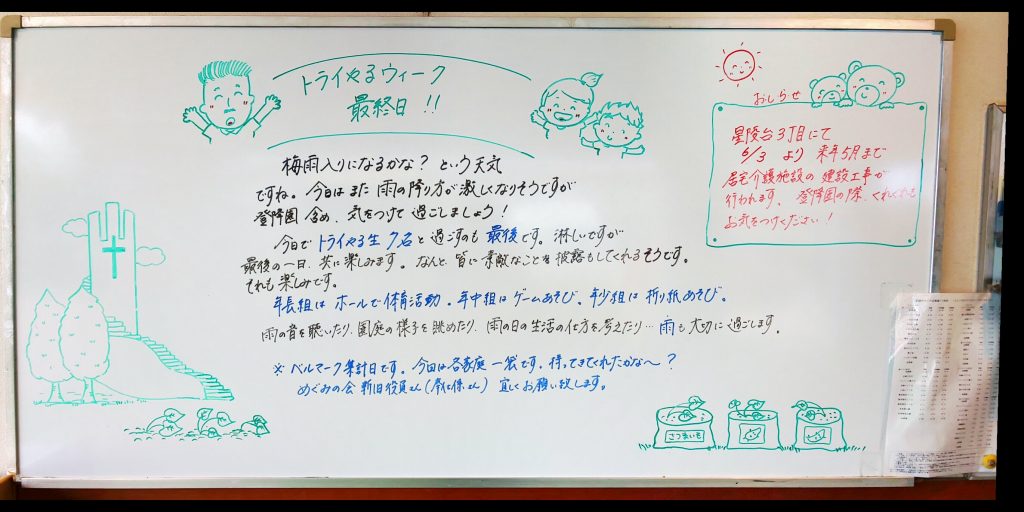 トライやるウィーク
最終日!!
梅雨入りになるかな?という天気
ですね。今日はまた雨の降り方が激しくなりそうですが
登降園含め、気をつけて過ごしましょう!
今日でトライやる生7名と過ごすのも最後です。淋しいですが
最後の一日、共に楽しみます。なんと、皆に素敵なことを披露もしてくれるそうです。
それも楽しみです。
年長組はホールで体育活動。年中組はゲームあそび。年少組は折り紙あそび。
雨の音を聴いたり、園庭の様子を眺めたり、雨の日の生活の仕方を考えたり…雨も大切に過ごします。
※ベルマーク集計日です。今回は各家庭一袋です。持ってきてくれたかな〜?
めぐみの会 新旧役員さん( 係さん)宜しくお願い致します。
おしらせ
星陵台3丁目にて
6/3より来年5月まで
居宅介護施設の建設工事が
行われます、登降園の際、くれぐれも
お気をつけください!
さつまいも